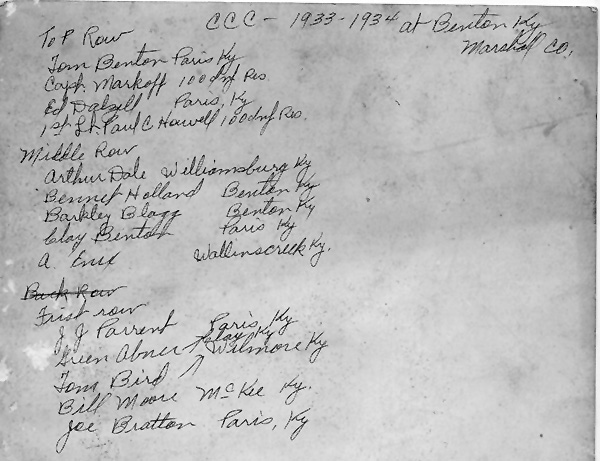 CCC - 1933-1934 at Benton Ky
Marshall Co,
ToP Row
Tom Benton Paris Ky
Caph. Markoff 100 dnf Res.
Ed Dalzell Paris, Ky
1st Lt. Paul C Howell 100 dnf Res.
Middle Row
Arthur Dale Williamsburg Ky
Bennet Holland Benton Ky
Barkley Blagg Benton Ky
Clay Benton Paris Ky
A. Enix Wallinscreek Ky.
Back Row
Frist row
J J Parrent Paris, Ky
Green Abner Clay Ky
Tom Bird Wilmore Ky
Bill Moore McKee Ky.
Joe Bratton Paris, Ky